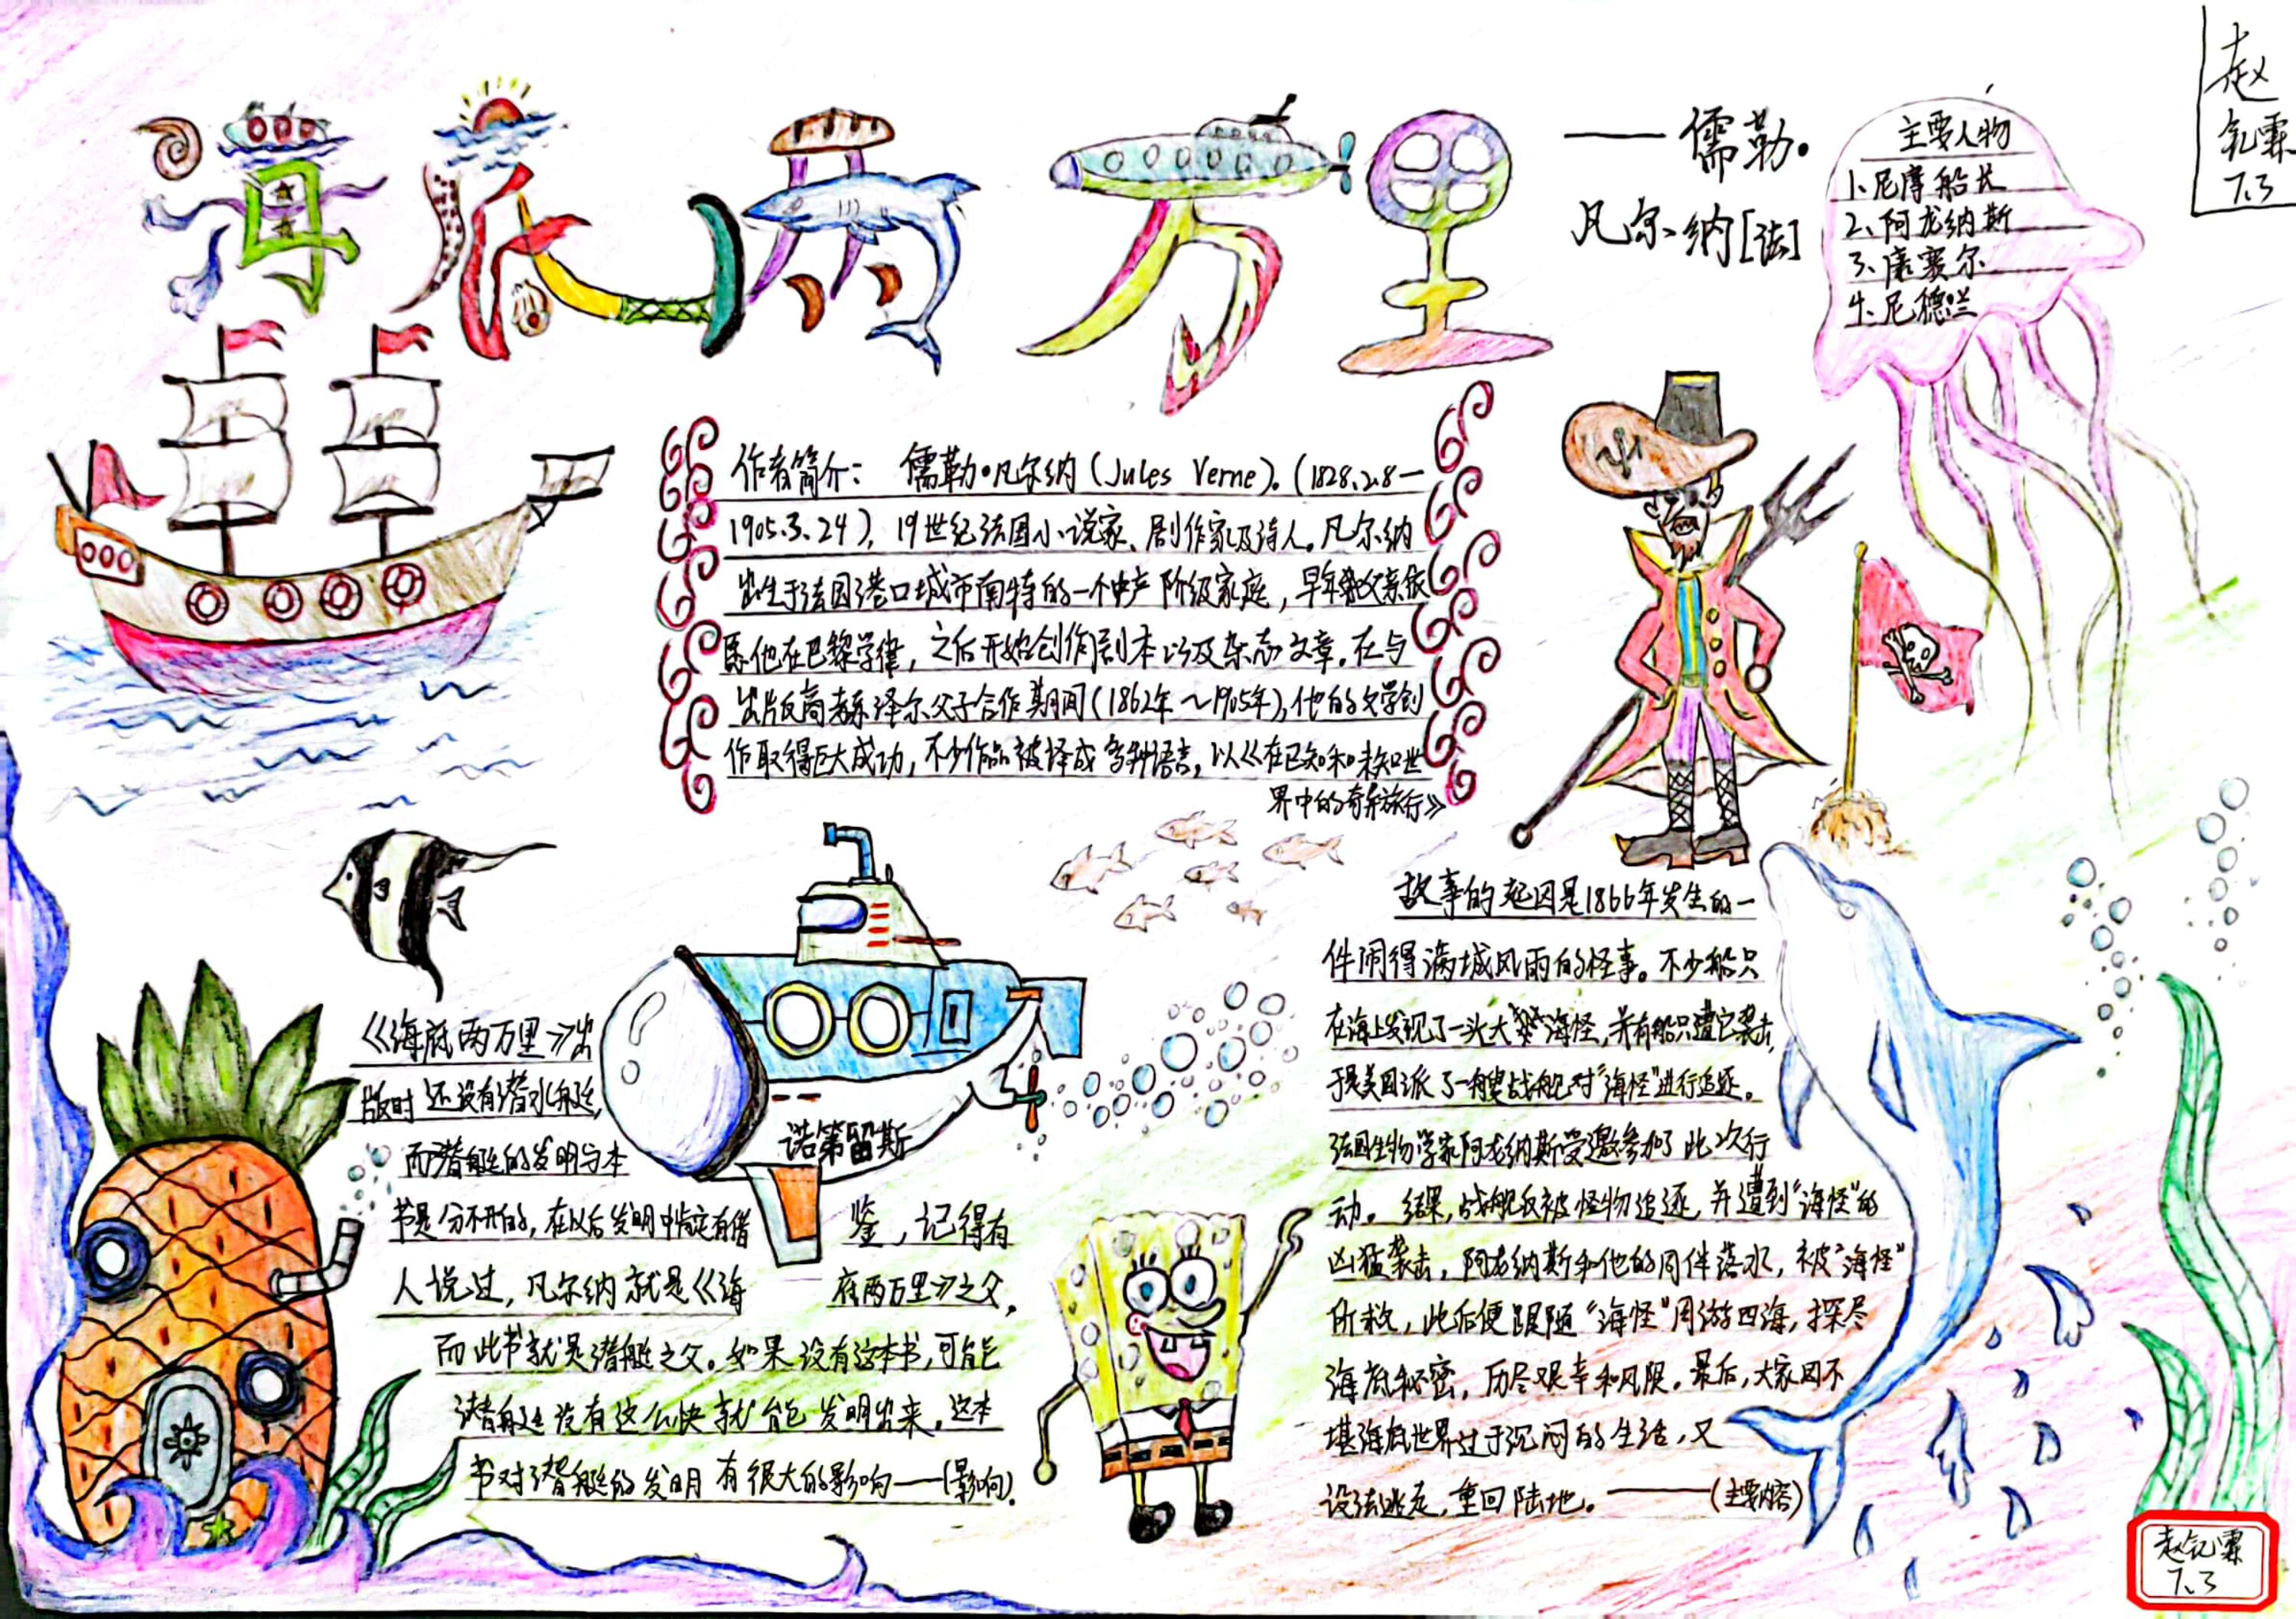 海底两万里
——儒勒·
凡尔纳[法]
主要人物
1、尼摩船长
2、阿龙纳斯
3、康塞尔
4、尼德兰
赵
霖
7.3
作者简介： 儒勒·凡尔纳（Jules Verne）。（1828.2.8—
1905.3.24），19世纪法国小说家、剧作家及诗人。凡尔纳
出生于法国港口城市南特的一个中产阶级家庭，早年
他在巴黎学律，之后开始创作剧本以及杂志文章。在与
出版 泽尔父子合作期间（1862年～1905年），他的文学创
作取得巨大成功，不少作品被译成多种语言，以《在已知和未知世
界中的奇异旅行》
诺第留斯
《海底两万里》出
版时还没有潜水艇，
而潜艇的发明与本
书是分不开的，在以后发明中肯定有借
鉴，记得有
人说过，凡尔纳就是《海
底两万里》之父，
而此书就是潜艇之父。如果没有这本书，可能
潜艇没有这么快就能发明出来。这本
书对潜艇的发明有很大的影响——（影响）。
故事的起因是1866年发生的一
件闹得满城风雨的怪事。不少船只
在海上发现了一头大 海怪，并有船只遭它袭击，
于是美国派了一艘战舰对“海怪”进行追逐。
法国生物学家阿龙纳斯受邀参加了此次行
动。结果，战舰反被怪物追逐，并遭到“海怪”的
凶猛袭击，阿龙纳斯和他的同伴落水，被“海怪”
所救，此后便跟随“海怪”周游四海，探尽
海底秘密，历尽艰辛和风险。最后，大家因不
堪海底世界过于沉闷的生活，又
设法逃走，重回陆地。——（主要内容）
赵 霖
7.3